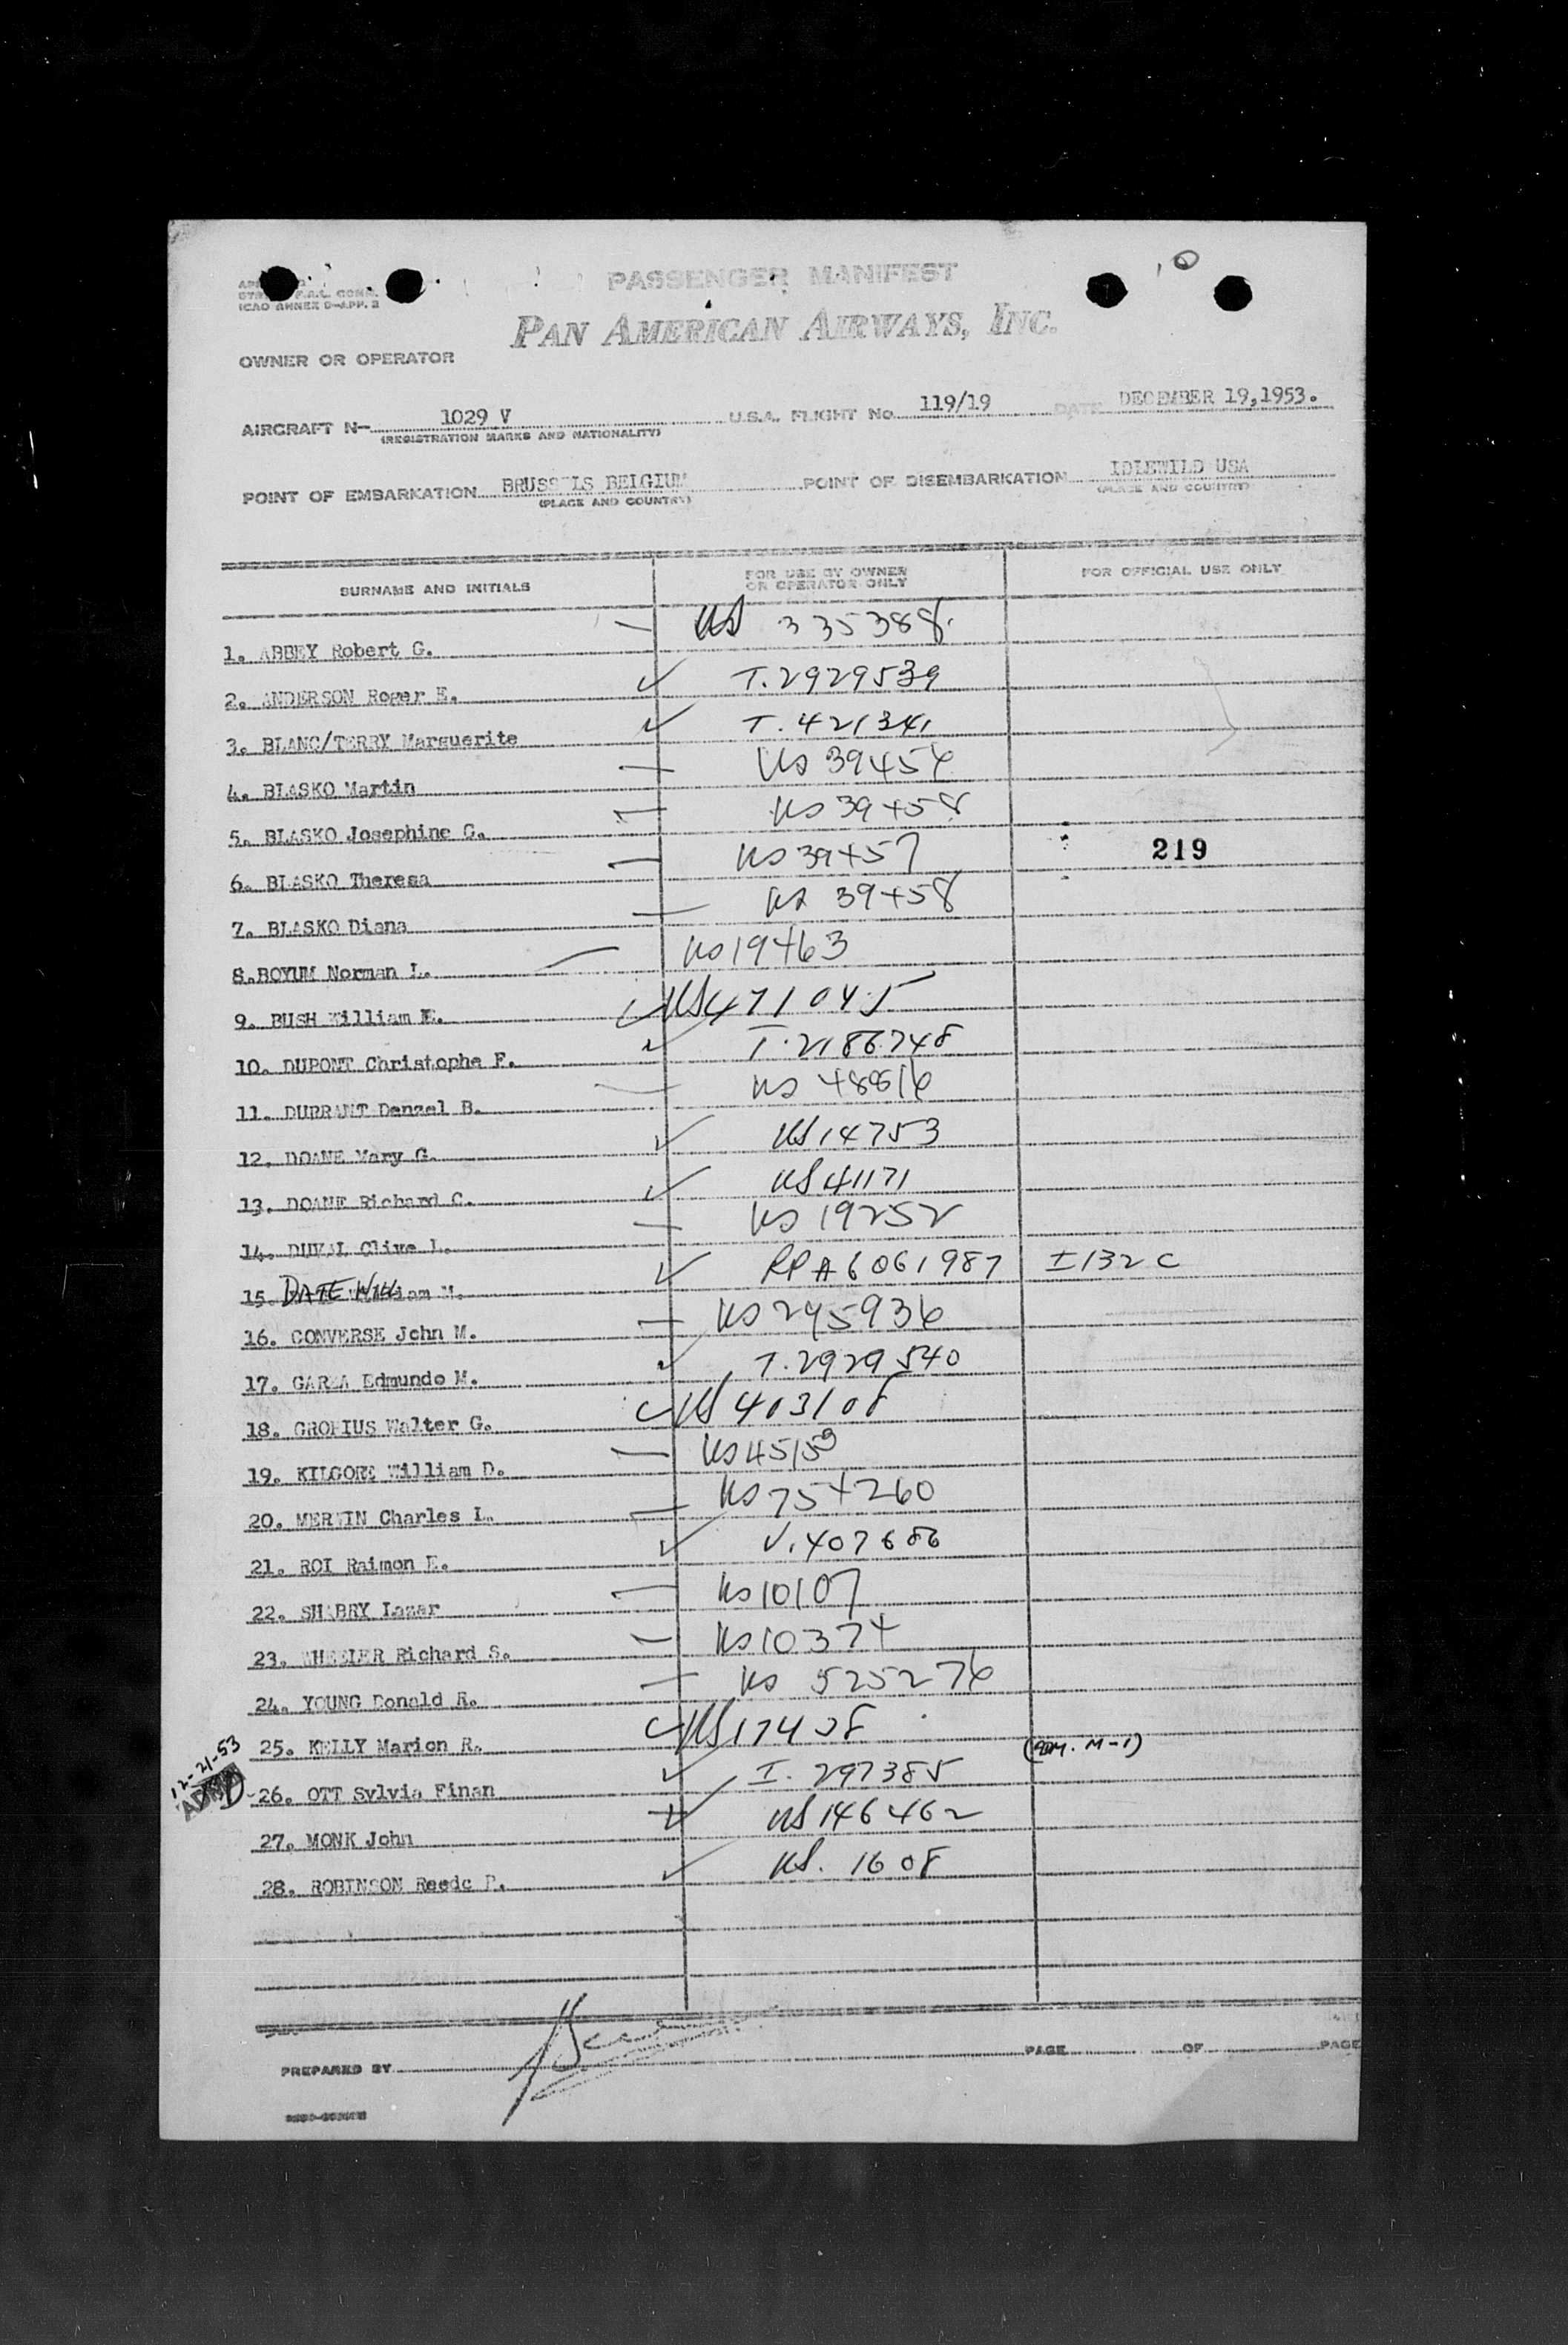 PASSENGER MANIFEST
F.A.L. COMM.
ICAO ANNEX 9-APP. 2
PAN AMERICAN AIRWAYS, INC.
OWNER OR OPERATOR
AIRCRAFT N- 1029 V U.S.A. FLIGHT No. 119/19 DATE DECEMBER 19,1953.
(REGISTRATION MARKS AND NATIONALITY)
POINT OF EMBARKATION BRUSSELS BELGIUM POINT OF DISEMBARKATION IDLEWILD USA
(PLACE AND COUNTRY) (PLACE AND COUNTRY)
SURNAME AND INITIALS FOR USE BY OWNER OR OPERATOR ONLY FOR OFFICIAL USE ONLY
1. ABBEY Robert G. US 335388.
2. ANDERSON Roger E. T.2929539
3. BLANC/TERRY Marguerite T.421341
4. BLASKO Martin US 39456
5. BLASKO Josephine G. US 39458
219
6. BLASKO Theresa US 39457
7. BLASKO Diana US 39458
8.BOYUM Norman L. US 19463
9. BUSH William E. US 471045
10. DUPONT Christophe F. T.2186748
11. DURRANT Denzel B. US 48816
12. DOANE Mary G. US 14753
13. DOANE Richard C. US 41171
14. DUVAL Clive L. US 19252
15. DATE William M. RP A6061987 I 132 C
16. CONVERSE John M. US 245936
17. GARZA Edmundo M. T.2929540
18. GROPIUS Walter G. US 403108
19. KILGORE William D. US 45159
20. MERWIN Charles L. US 754260
21. ROI Raimon E. V.407686
22. SHABRY Lazar US 10107
23. WHEELER Richard S. US 10374
24. YOUNG Donald R. US 525276
25. KELLY Marion R. US 17408
12-21-53
(ADM. M-1)
26. OTT Sylvia Finan I. 297385
27. MONK John US 146462
28. ROBINSON Reede P. US. 1608
PREPARED BY PAGE OF PAGE